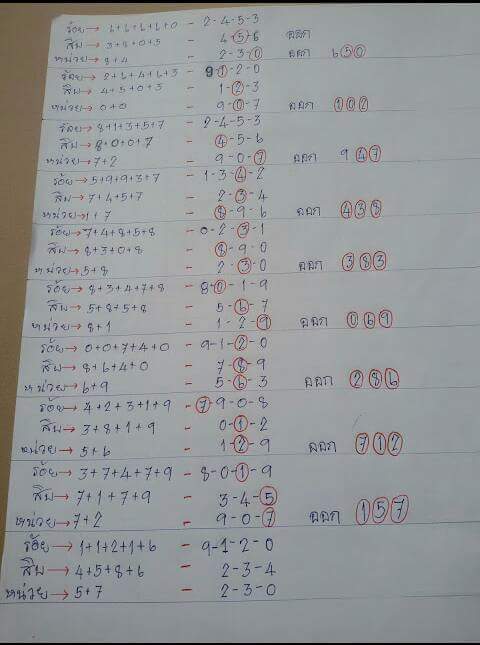 ร้อย → 6+6+6+6+0 - 2-4-5-3
สิบ → 3+8+0+5 - 4-5-6 ออก
หน่วย → 8+4 - 2-3-0 ออก 650
ร้อย → 2+6+4+6+3 - 9-1-2-0
สิบ → 4+5+0+3 - 1-2-3
หน่วย → 0+0 - 9-0-7 ออก 102
ร้อย → 8+1+3+5+7 - 2-4-5-3
สิบ → 8+0+0+7 - 4-5-6
หน่วย → 7+2 - 9-0-7 ออก 947
ร้อย → 5+9+9+3+7 - 1-3-4-2
สิบ → 7+4+5+7 - 2-3-4
หน่วย → 1+7 - 8-9-6 ออก 438
ร้อย → 7+4+8+5+8 - 0-2-3-1
สิบ → 8+3+0+8 - 8-9-0
หน่วย → 5+8 - 2-3-0 ออก 383
ร้อย → 8+3+4+7+8 - 8-0-1-9
สิบ → 5+8+5+8 - 5-6-7
หน่วย → 8+1 - 1-2-9 ออก 069
ร้อย → 0+0+7+4+0 - 9-1-2-0
สิบ → 8+6+4+0 - 7-8-9
หน่วย → 6+9 - 5-6-3 ออก 286
ร้อย → 4+2+3+1+9 - 7-9-0-8
สิบ → 3+8+1+9 - 0-1-2
หน่วย → 5+6 - 1-2-9 ออก 712
ร้อย → 3+7+4+7+9 - 8-0-1-9
สิบ → 7+1+7+9 - 3-4-5
หน่วย → 7+2 - 9-0-7 ออก 157
ร้อย → 1+1+2+1+6 - 9-1-2-0
สิบ → 4+5+8+6 - 2-3-4
หน่วย → 5+7 - 2-3-0